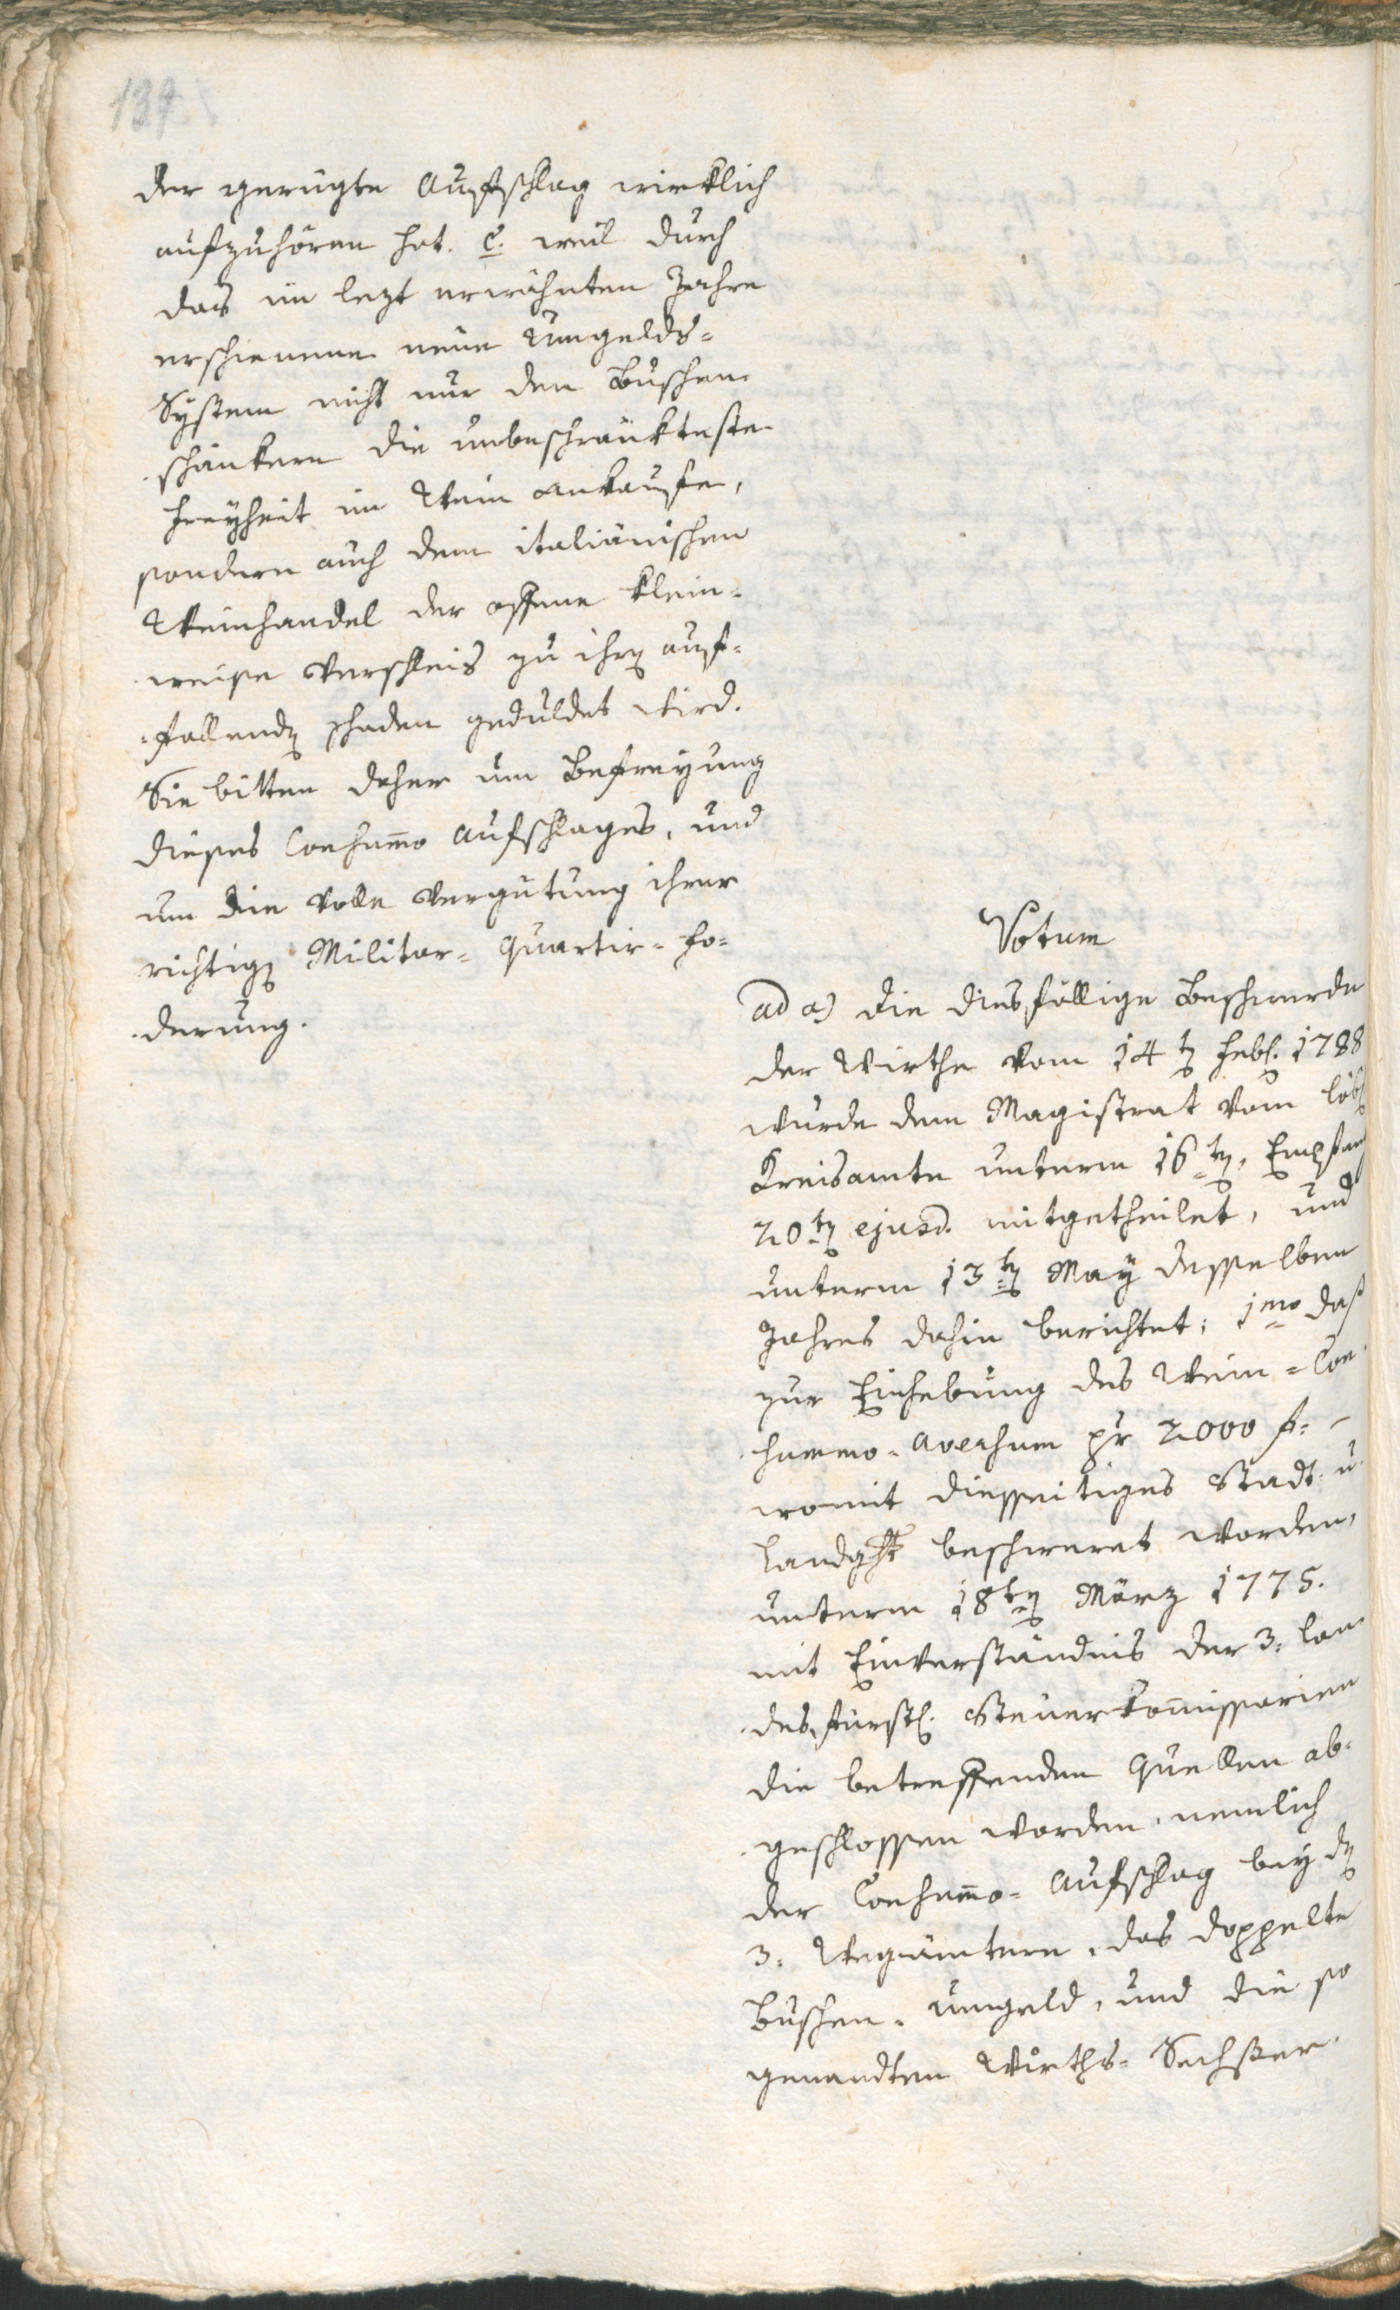 der gerügte Aufschlag wirklich
aufzuhören hat. c. weil durch
das im lezt erwähnten Jahre
erschienene neüe Umgelds=
System nicht nur den Buschen
schänkern die unbeschränkteste
Freyheit im Wein ankaufe,
sondern auch dem italiänischen
Weinhandel der offene klein=
weise Verschleis zu ihrem auf=
fallenden schaden geduldet wird.
Sie bitten daher um Befreyung
dieses Consumo Aufschlages, und
um die volle Vergütung ihrer
richtigen Militar= Quartir= Fo=
derung.
Votum
ad a) die diesfällige Beschwerde
der Wirthe vom 14ten Febr. 1788
wurde dem Magistrat vom löbl
Kreisamte unterm 16ten, Empfang
20ten ejusd. mitgetheilet, und
unterm 13ten May desselben
Jahres dahin berichtet; 1mo daß
zur Einhebung des Wein=Con
summo=Aversum pr 2000 f:
womit diesseitiges Stadt u.
Landght beschweret worden,
unterm 18ten März 1775.
mit Einverständnis der 3. lan
desfürstl. Steuerkommissarien
die betreffenden Quellen ab=
geschlossen worden, nemlich
der Consummo= Aufschlag bey den
3. Wegämtern, das doppelte
Buschen=Umgeld, und die so
genandten Wirths= Sechster